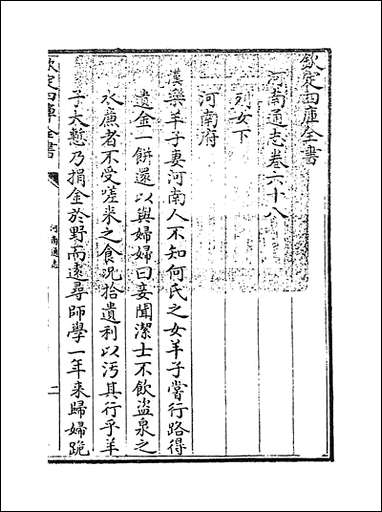 欽定四庫全書
河南通志卷六十八
列女下
河南府
漢樂羊子妻河南人不知何氏之女羊子嘗行路得
遺金一餅還以與婦婦曰妾聞潔士不飲盜泉之
水廉者不受嗟來之食況拾遺利以污其行乎羊
子大慙乃捐金於野而遠尋師學一年來歸婦跪
欽定四庫全書
河南通志